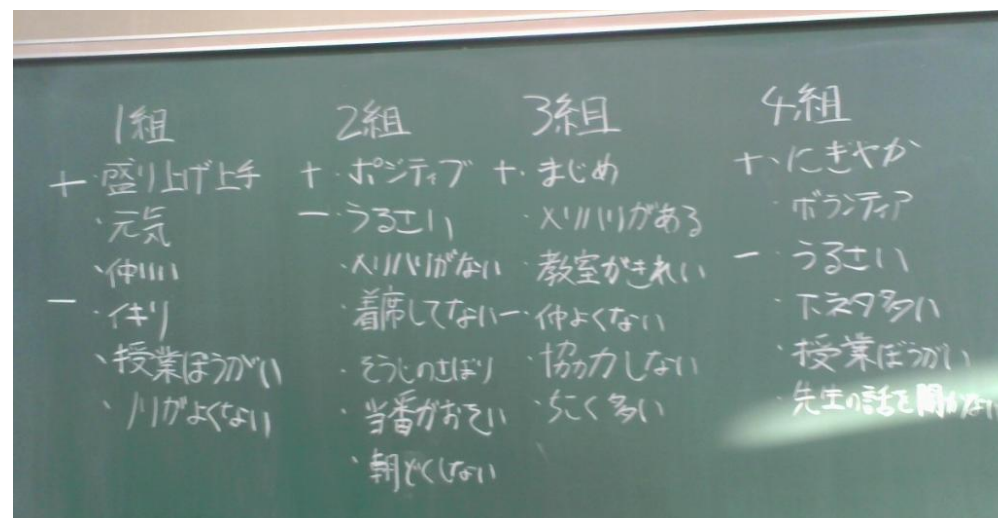 1組
+・盛り上げ上手
・元気
・仲いい
-・イキリ
・授業ぼうがい
・ノリがよくない
2組
+・ポジティブ
-・うるさい
・メリハリがない
・着席してない
・そうじのさぼり
・当番がおそい
・朝どくしない
3組
+・まじめ
・メリハリがある
・教室がきれい
-・仲よくない
・協力しない
・ちこく多い
4組
+・にぎやか
・ボランティア
-・うるさい
・下ネタ多い
・授業ぼうがい
・先生の話を聞かない